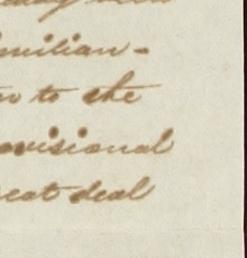 milian-
to the
ovisional
reat deal